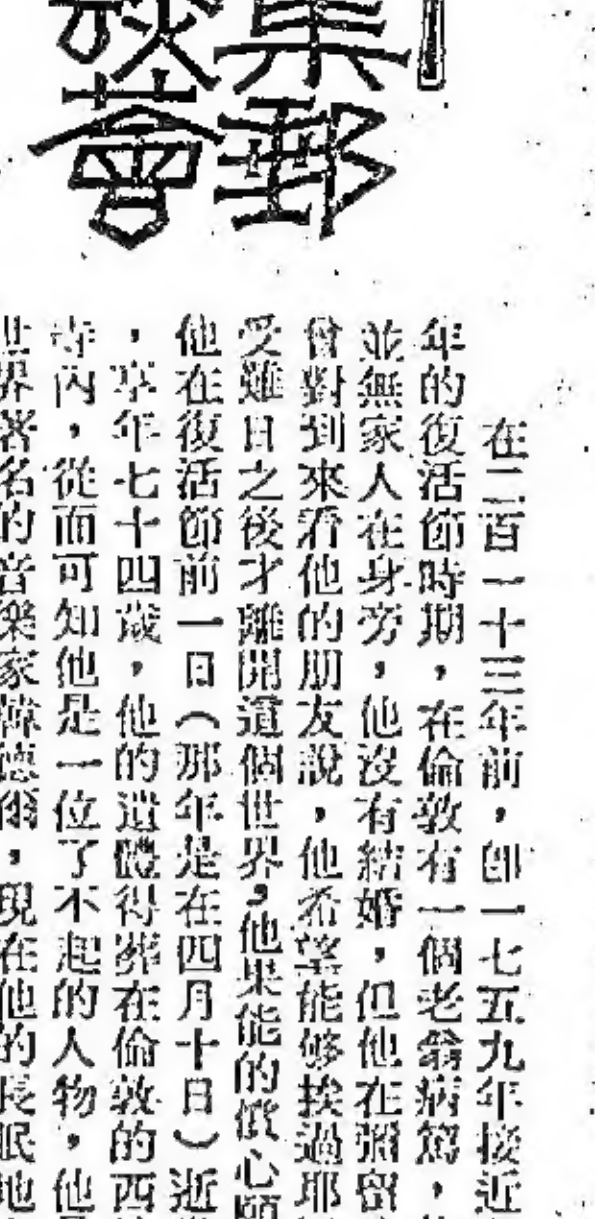 集郵
談薈
在二百一十三年前，即一七五九年接近
年的復活節時期，在倫敦有一個老翁病篤，
並無家人在身旁，他沒有結婚，但他在彌留
曾對到來看他的朋友說，他希望能够挨過耶
受難日之後才離開這個世界，他果能的償心願
他在復活節前一日（那年是在四月十日）逝
，享年七十四歲，他的遺體得葬在倫敦的西
寺內，從而可知他是一位了不起的人物，他
世界著名的音樂家韓德爾，現在他的長眠地